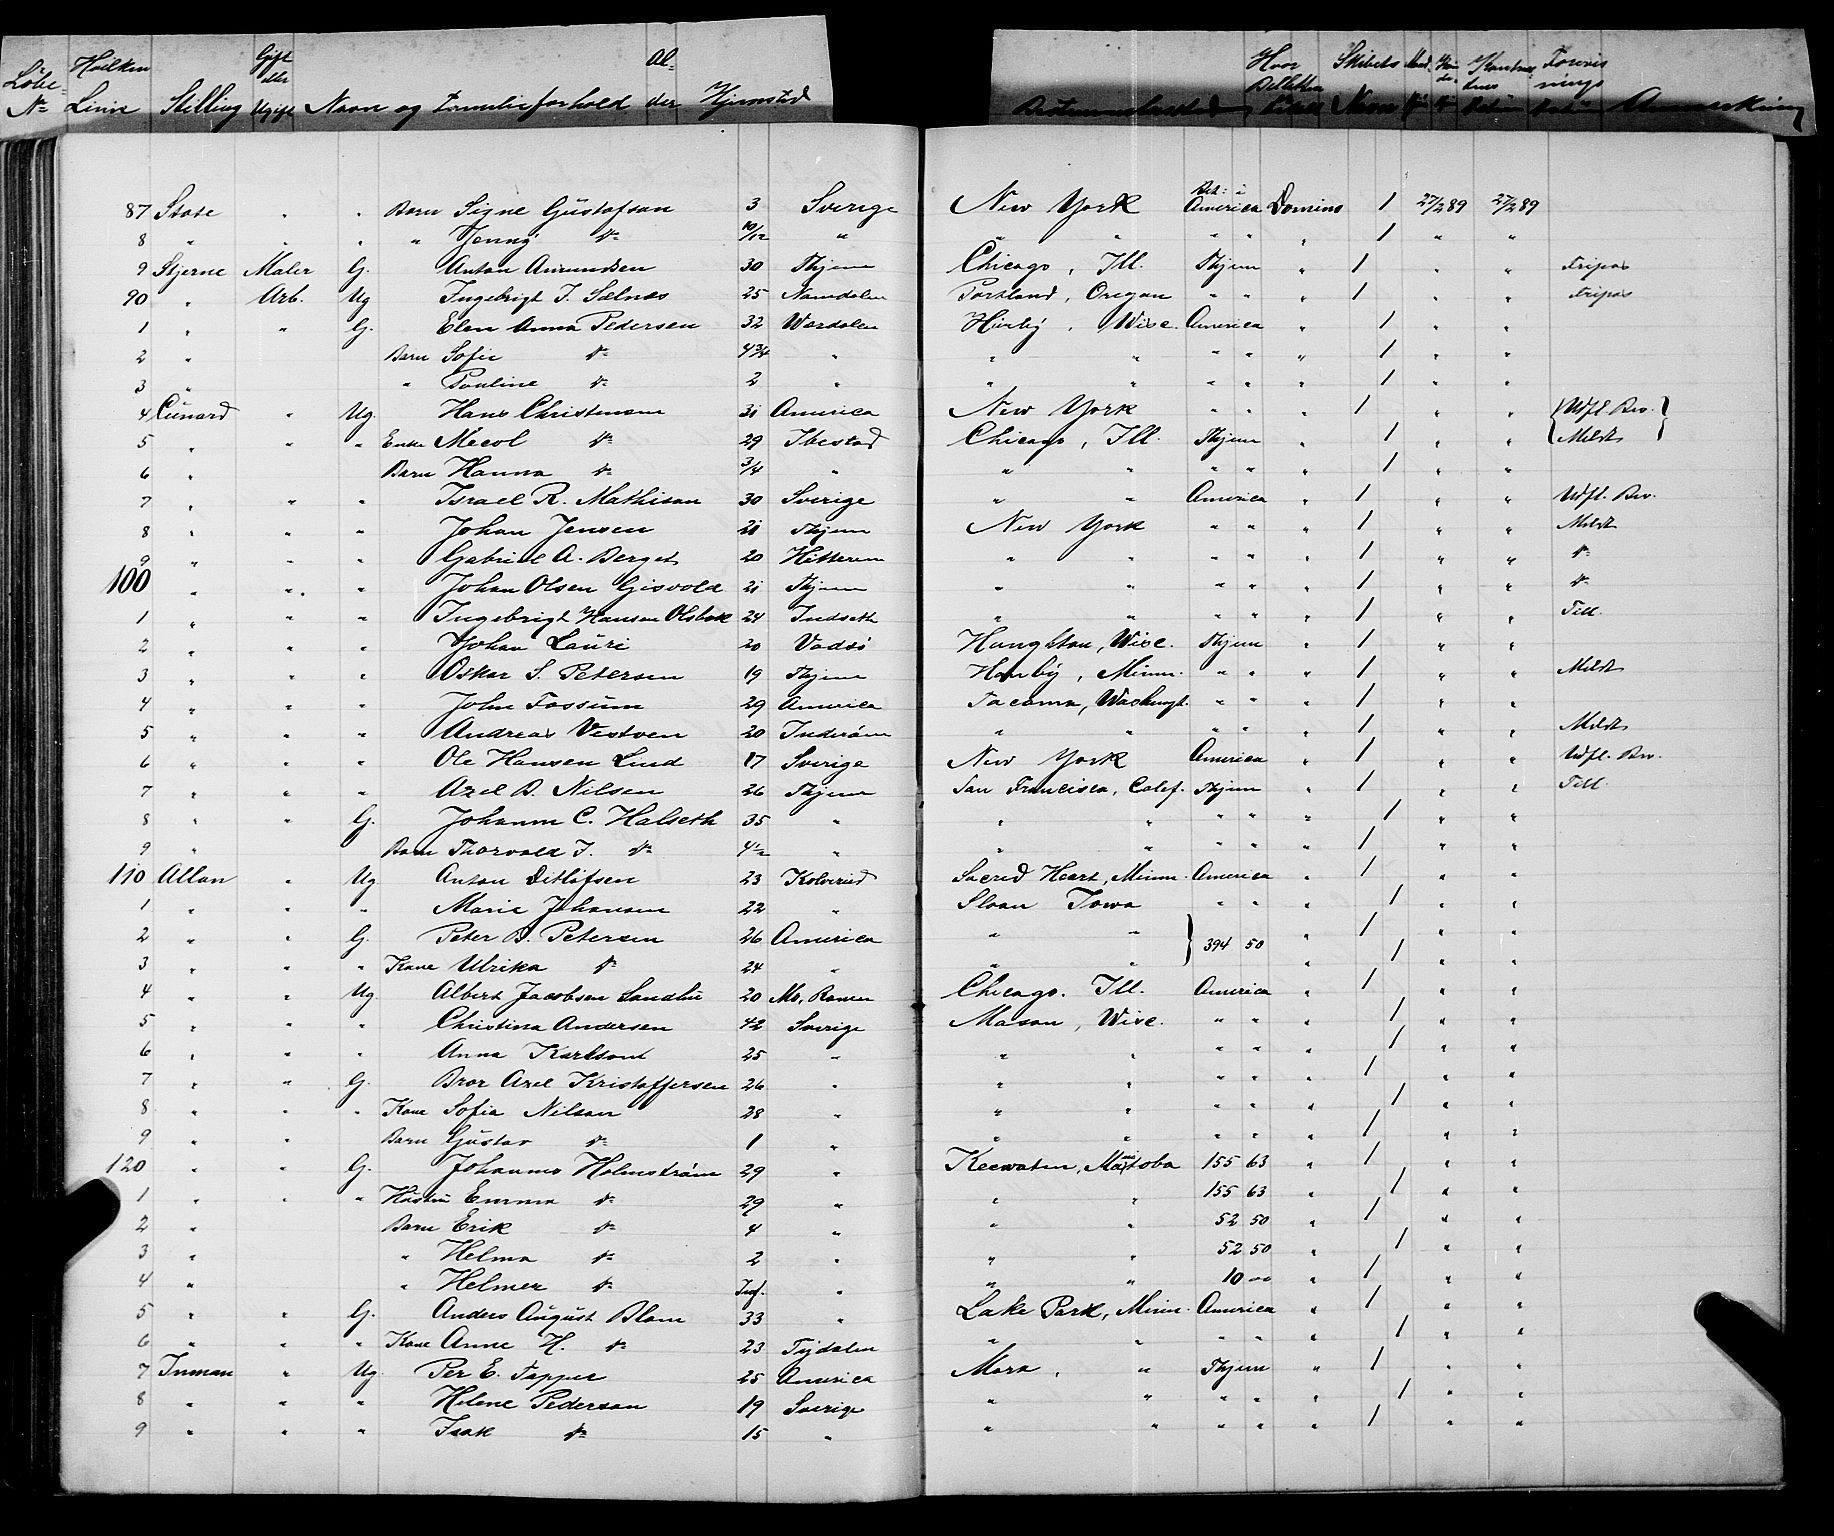 Löbe- Nr Hvilken Linie Stilling Gift eller Ugift Navn og Familieforhold Alder Hjemsted Bestemmelsessted Hvor Billetten Skibets Navn Anmerkning
87 State " " Barn Signe Gustafson 3 Sverige New York Bet: i America Domino 1 27/2 89 27/2 89
8 " " " " Jenny do 10/12 " " " " " " 1 " "
9 Stjerne Maler G. Anton Amundsen 30 Thjem Chicago, Ill. Thjem " 1 " " Tripos
90 " Arb. Ug Ingebrigt J. Selnæs 25 Namdalen Portland, Oregon " " " 1 " " Tripos
1 " " G. Elen Anna Pedersen 32 Værdalen Hurley, Wisc. America " 1 " "
2 " Barn Sofie do 4 3/4 " " " " " " 1 " "
3 " " Pauline do 2 " " " " " " 1 " "
4 Cunard " Ug. Hans Christensen 31 America New York " " " 1 " " Udfl. Bev.
5 " " " Enke Mecol do 29 Ibestad Chicago, Ill. Thjem " 1 " " Meldt
6 " Barn Hanna do 3/4 " " " " " " 1 " "
7 " " " Israel R. Mathisen 30 Sverige " " America " 1 " " Udfl. Bev.
8 " " " Johan Jensen 21 Thjem New York " " " 1 " " Meldt
9 " " " Gabriel A. Berget 20 Hitteren " " " " " 1 " " do
100 " " " Johan Olsen Gisvold 21 Thjem " " " " " 1 " " do
1 " " " Ingebrigt Hansen Olsbak 24 Indseth " " " " " 1 " " Till.
2 " " " Johan Lauri 20 Vadsö Hanghton, Wisc. Thjem " 1 " "
3 " " " Oskar S. Petersen 19 Thjem Hanby, Minn. " " " 1 " " Meldt
4 " " " John Fossum 29 America Tacoma, Washingt. " " " 1 " "
5 " " " Andreas Vestven 20 Inderöen " " " " " 1 " " Meldt
6 " " " Ole Hansen Lund 17 Sverige New York America " 1 " " Udfl. Bev.
7 " " " Axel B. Nilsen 26 Thjem San Francisco, Calef. Thjem " 1 " " Till.
8 " " G. Johanna C. Halseth 35 " " " " " " 1 " "
9 " Barn Thorvald J. do 4 1/2 " " " " " " 1 " "
110 Allan " Ug Anton Detlofsen 23 Kolvereid Sacred Heart, Minn. America " 1 " "
1 " " " Marie Johansen 22 " Sloan Iowa " " " 1 " "
2 " " G. Peter B. Petersen 26 America " " } 394 50 " 1 " "
3 " " " Kone Ulrika do 24 " " " " 1 " "
4 " " Ug. Albert Jacobsen Sandlie 20 Mo, Ranen Chicago. Ill. America " 1 " "
5 " " " Christina Andersen 42 Sverige Mason, Wisc. " " " 1 " "
6 " " " Anna Karlsont 25 " " " " " " 1 " "
7 " " G. Bror Axel Kristoffersen 26 " " " " " " 1 " "
8 " " " Kone Sofia Nilson 28 " " " " " " 1 " "
9 " " Barn Gustav do 1 " " " " " " 1 " "
120 " " G. Johannes Holmström 29 " Keewaten, Manitoba 155 63 " 1 " "
1 " " " Hustru Emma do 29 " " " 155 63 " 1 " "
2 " Barn Erik do 4 " " " 52 50 " 1 " "
3 " " Helma do 2 " " " 52 50 " 1 " "
4 " " Helmer do Inf. " " " 10 00 " 1 " "
5 " " G. Anders August Blom 33 " Lake Park, Minn. America " 1 " "
6 " " " Kone Anne H. do 23 Tydalen " " " " " 1 " "
7 Inman " Ug. Per E. Tapper 25 America Mora, " Thjem " 1 " "
8 " " " Helene Pederson 19 Sverige " " " " " 1 " "
9 " " " Isak do 15 " " " " " " 1 " "